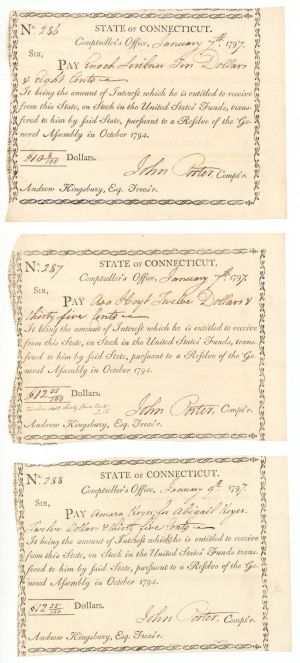 No. 286 STATE OF CONNECTICUT.
Comptroller's Office, January 7th. 1797.
SIR,
PAY Enoch Scribner Ten Dollars
& eight Cents
It being the amount of Interest which he is entitled to receive
from this State, on Stock in the United States' Funds, trans-
ferred to him by said State, pursuant to a Resolve of the Ge-
neral Assembly in October 1794.
$10 8/100 Dollars.
John Porter, Compt'r.
Andrew Kingsbury, Esq. Treas'r.
No. 287 STATE OF CONNECTICUT.
Comptroller's Office, January 7th. 1797.
SIR,
PAY Asa Hoyt Twelve Dollars &
thirty five Cents
It being the amount of Interest which he is entitled to receive
from this State, on Stock in the United States' Funds, trans-
ferred to him by said State, pursuant to a Resolve of the Ge-
neral Assembly in October 1794.
$12 35/100 Dollars.
John Porter, Compt'r.
Andrew Kingsbury, Esq. Treas'r.
No. 288 STATE OF CONNECTICUT.
Comptroller's Office, January 9th. 1797.
SIR,
PAY Amara Keyes for Abigail Keyes.
Twelve Dollars & thirty five Cents
It being the amount of Interest which he is entitled to receive
from this State, on Stock in the United States' Funds trans-
ferred to him by said State, pursuant to a Resolve of the Ge-
neral Assembly in October 1794.
$12 35/100 Dollars.
John Porter, Compt'r.
Andrew Kingsbury, Esq. Treas'r.